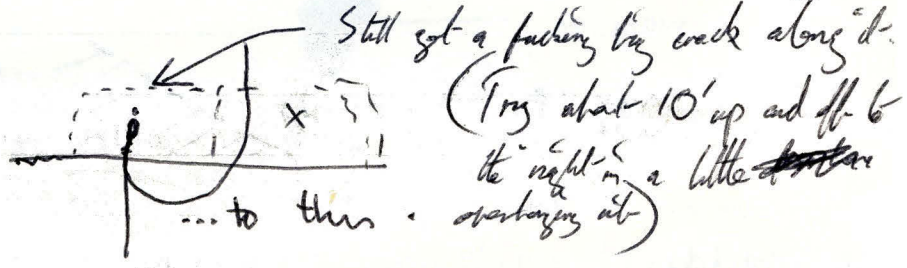 Still got a fucking big crack along it.
(Try about 10' up and off to
the right in a little
overhanging
... to this.